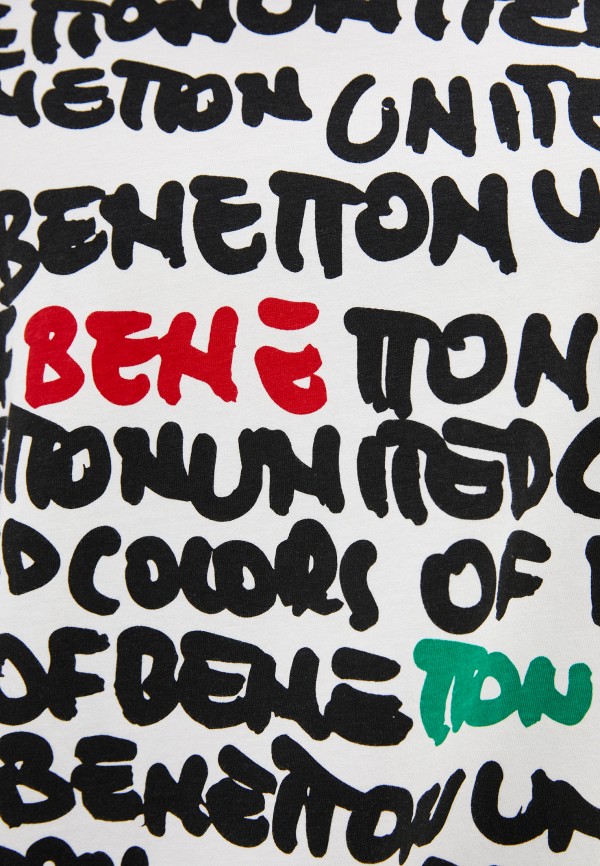 ETTON UNITE
NETTON UNITE
BENETTON U
BENETTON
TTONUNITED C
D COLORS OF
OF BENETTON
BENETTON UN